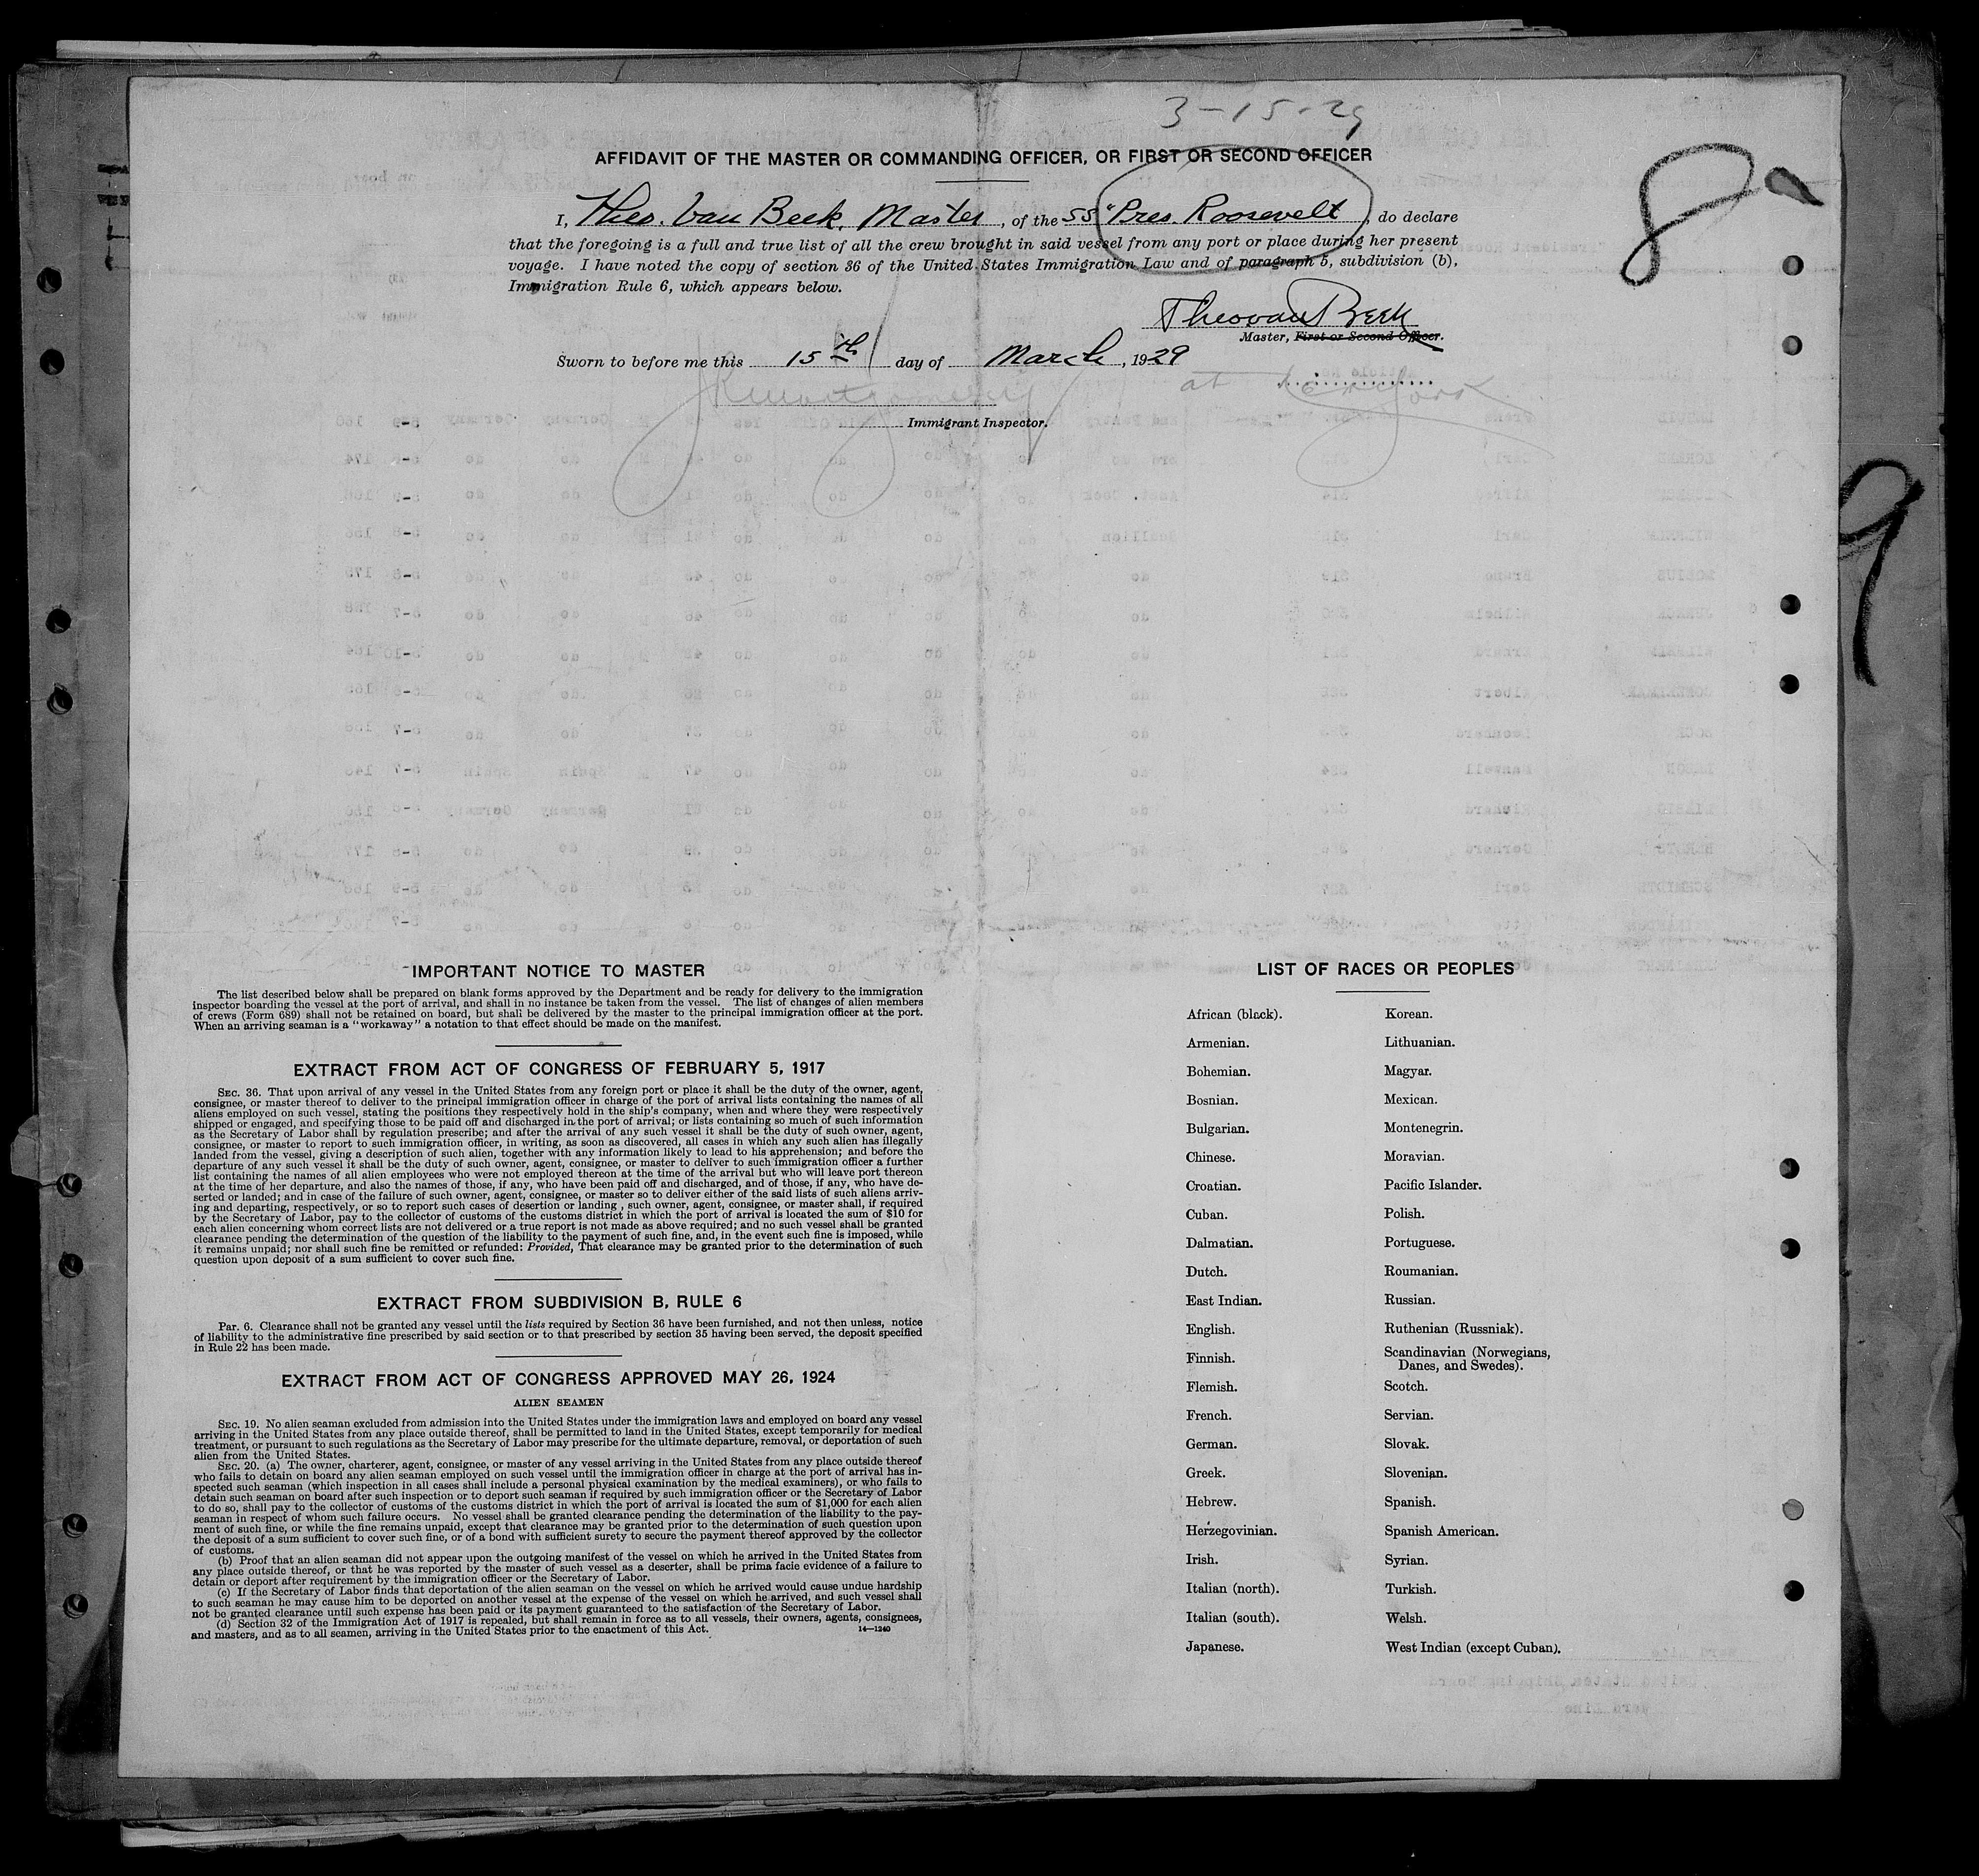 3-15-29
8
9
AFFIDAVIT OF THE MASTER OR COMMANDING OFFICER, OR FIRST OR SECOND OFFICER
I, Theo. Van Beek, Master, of the SS "Pres. Roosevelt, do declare
that the foregoing is a full and true list of all the crew brought in said vessel from any port or place during her present
voyage. I have noted the copy of section 36 of the United States Immigration Law and of paragraph 5, subdivision (b),
Immigration Rule 6, which appears below.
Theo van Beek
Master, First or Second Officer.
Sworn to before me this 15th day of March, 1929
at New York
Immigrant Inspector.
IMPORTANT NOTICE TO MASTER
The list described below shall be prepared on blank forms approved by the Department and be ready for delivery to the immigration
inspector boarding the vessel at the port of arrival, and shall in no instance be taken from the vessel. The list of changes of alien members
of crews (Form 689) shall not be retained on board, but shall be delivered by the master to the principal immigration officer at the port.
When an arriving seaman is a "workaway" a notation to that effect should be made on the manifest.
EXTRACT FROM ACT OF CONGRESS OF FEBRUARY 5, 1917
SEC. 36. That upon arrival of any vessel in the United States from any foreign port or place it shall be the duty of the owner, agent,
consignee, or master thereof to deliver to the principal immigration officer in charge of the port of arrival lists containing the names of all
aliens employed on such vessel, stating the positions they respectively hold in the ship's company, when and where they were respectively
shipped or engaged, and specifying those to be paid off and discharged in the port of arrival; or lists containing so much of such information
as the Secretary of Labor shall by regulation prescribe; and after the arrival of any such vessel it shall be the duty of such owner, agent,
consignee, or master to report to such immigration officer, in writing, as soon as discovered, all cases in which any such alien has illegally
landed from the vessel, giving a description of such alien, together with any information likely to lead to his apprehension; and before the
departure of any such vessel it shall be the duty of such owner, agent, consignee, or master to deliver to such immigration officer a further
list containing the names of all alien employees who were not employed thereon at the time of the arrival but who will leave port thereon
at the time of her departure, and also the names of those, if any, who have been paid off and discharged, and of those, if any, who have de-
serted or landed; and in case of the failure of such owner, agent, consignee, or master so to deliver either of the said lists of such aliens arriv-
ing and departing, respectively, or so to report such cases of desertion or landing , such owner, agent, consignee, or master shall, if required
by the Secretary of Labor, pay to the collector of customs of the customs district in which the port of arrival is located the sum of $10 for
each alien concerning whom correct lists are not delivered or a true report is not made as above required; and no such vessel shall be granted
clearance pending the determination of the question of the liability to the payment of such fine, and, in the event such fine is imposed, while
it remains unpaid; nor shall such fine be remitted or refunded: Provided, That clearance may be granted prior to the determination of such
question upon deposit of a sum sufficient to cover such fine.
EXTRACT FROM SUBDIVISION B, RULE 6
Par. 6. Clearance shall not be granted any vessel until the lists required by Section 36 have been furnished, and not then unless, notice
of liability to the administrative fine prescribed by said section or to that prescribed by section 35 having been served, the deposit specified
in Rule 22 has been made.
EXTRACT FROM ACT OF CONGRESS APPROVED MAY 26, 1924
ALIEN SEAMEN
SEC. 19. No alien seaman excluded from admission into the United States under the immigration laws and employed on board any vessel
arriving in the United States from any place outside thereof, shall be permitted to land in the United States, except temporarily for medical
treatment, or pursuant to such regulations as the Secretary of Labor may prescribe for the ultimate departure, removal, or deportation of such
alien from the United States.
SEC. 20. (a) The owner, charterer, agent, consignee, or master of any vessel arriving in the United States from any place outside thereof
who fails to detain on board any alien seaman employed on such vessel until the immigration officer in charge at the port of arrival has in-
spected such seaman (which inspection in all cases shall include a personal physical examination by the medical examiners), or who fails to
detain such seaman on board after such inspection or to deport such seaman if required by such immigration officer or the Secretary of Labor
to do so, shall pay to the collector of customs of the customs district in which the port of arrival is located the sum of $1,000 for each alien
seaman in respect of whom such failure occurs. No vessel shall be granted clearance pending the determination of the liability to the pay-
ment of such fine, or while the fine remains unpaid, except that clearance may be granted prior to the determination of such question upon
the deposit of a sum sufficient to cover such fine, or of a bond with sufficient surety to secure the payment thereof approved by the collector
of customs.
(b) Proof that an alien seaman did not appear upon the outgoing manifest of the vessel on which he arrived in the United States from
any place outside thereof, or that he was reported by the master of such vessel as a deserter, shall be prima facie evidence of a failure to
detain or deport after requirement by the immigration officer or the Secretary of Labor.
(c) If the Secretary of Labor finds that deportation of the alien seaman on the vessel on which he arrived would cause undue hardship
to such seaman he may cause him to be deported on another vessel at the expense of the vessel on which he arrived, and such vessel shall
not be granted clearance until such expense has been paid or its payment guaranteed to the satisfaction of the Secretary of Labor.
(d) Section 32 of the Immigration Act of 1917 is repealed, but shall remain in force as to all vessels, their owners, agents, consignees,
and masters, and as to all seamen, arriving in the United States prior to the enactment of this Act.
14—1240
LIST OF RACES OR PEOPLES
African (black).
Armenian.
Bohemian.
Bosnian.
Bulgarian.
Chinese.
Croatian.
Cuban.
Dalmatian.
Dutch.
East Indian.
English.
Finnish.
Flemish.
French.
German.
Greek.
Hebrew.
Herzegovinian.
Irish.
Italian (north).
Italian (south).
Japanese.
Korean.
Lithuanian.
Magyar.
Mexican.
Montenegrin.
Moravian.
Pacific Islander.
Polish.
Portuguese.
Roumanian.
Russian.
Ruthenian (Russniak).
Scandinavian (Norwegians,
Danes, and Swedes).
Scotch.
Servian.
Slovak.
Slovenian.
Spanish.
Spanish American.
Syrian.
Turkish.
Welsh.
West Indian (except Cuban).